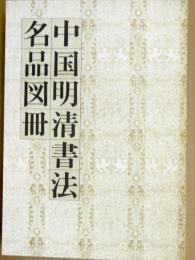 中国明清書法
名品図冊